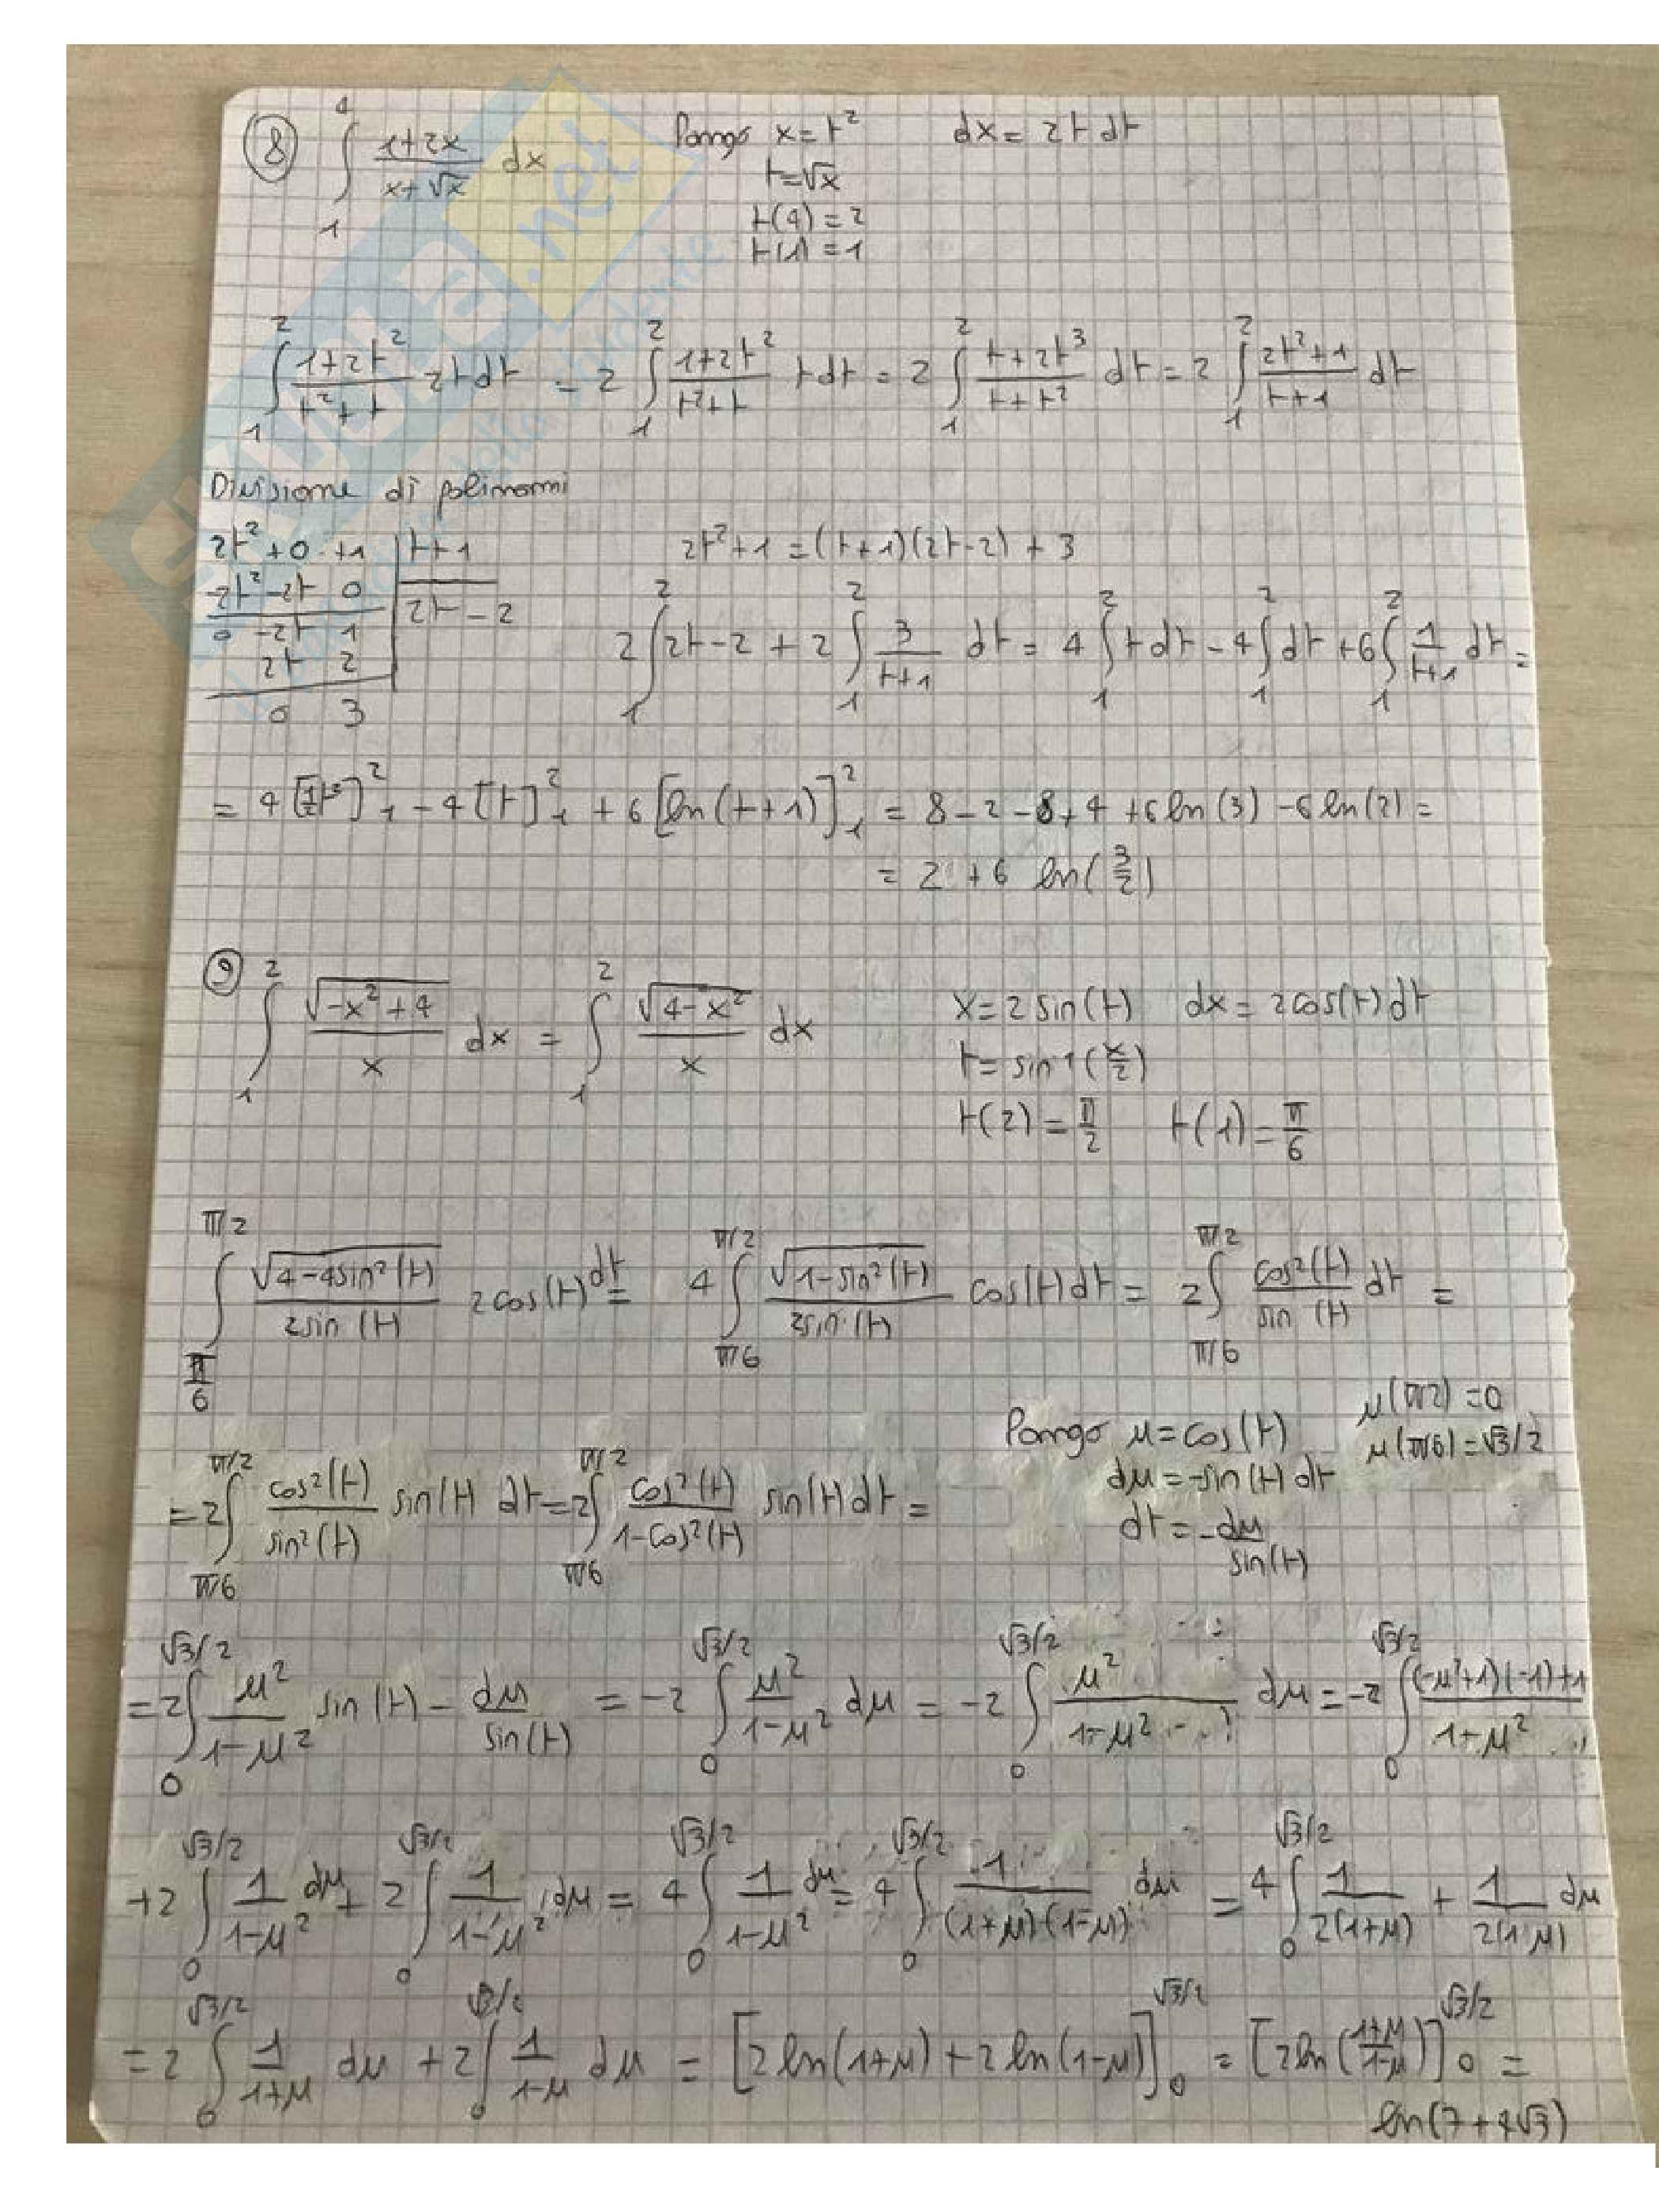 8 ∫₁⁴ (1+2x)/(x+√x) dx   Pongo x=t²   dx = 2t dt
t=√x
t(4) = 2
t(1) = 1
∫₁² (1+2t²)/(t²+t) 2t dt = 2 ∫₁² (1+2t²)/(t²+t) t dt = 2 ∫₁² (t+2t³)/(t+t²) dt = 2 ∫₁² (2t²+1)/(t+1) dt
Divisione di polinomi
2t² +0 +1 | t+1   2t²+1 = (t+1)(2t-2) + 3
-2t² -2t 0 | 2t - 2
0 -2t 1   2 ∫₁² 2t-2 + 2 ∫₁² 3/(t+1) dt = 4 ∫₁² t dt - 4 ∫₁² dt + 6 ∫₁² 1/(t+1) dt =
2t 2
0 3
= 4 [½t²]₁² - 4 [t]₁² + 6 [ln(t+1)]₁² = 8 - 2 - 8 + 4 + 6 ln(3) - 6 ln(2) =
= 2 + 6 ln(3/2)
9 ∫₁² √(-x²+4)/x dx = ∫₁² √(4-x²)/x dx   x = 2 sin(t)   dx = 2cos(t) dt
t = sin⁻1(x/2)
t(2) = π/2   t(1) = π/6
∫_{π/6}^{π/2} √(4-4sin²(t))/(2sin(t)) 2cos(t) dt = 4 ∫_{π/6}^{π/2} √(1-sin²(t))/(2sin(t)) cos(t) dt = 2 ∫_{π/6}^{π/2} cos²(t)/sin(t) dt =
Pongo μ = cos(t)   μ(π/2) = 0
μ(π/6) = √3/2
= 2 ∫_{π/6}^{π/2} cos²(t)/sin²(t) sin(t) dt = 2 ∫_{π/6}^{π/2} cos²(t)/(1-cos²(t)) sin(t) dt =   dμ = -sin(t) dt
dt = -dμ/sin(t)
= 2 ∫₀^{√3/2} μ²/(1-μ²) sin(t) - dμ/sin(t) = -2 ∫₀^{√3/2} μ²/(1-μ²) dμ = -2 ∫₀^{√3/2} μ²/(1-μ²) dμ = -2 ∫₀^{√3/2} ((-μ²+1)(-1)+1)/(1+μ²)
+2 ∫₀^{√3/2} 1/(1-μ²) dμ + 2 ∫₀^{√3/2} 1/(1-μ²) dμ = 4 ∫₀^{√3/2} 1/(1-μ²) dμ = 4 ∫₀^{√3/2} 1/((1+μ)(1-μ)) dμ = 4 ∫₀^{√3/2} 1/(2(1+μ)) + 1/(2(1-μ)) dμ
= 2 ∫₀^{√3/2} 1/(1+μ) dμ + 2 ∫₀^{√3/2} 1/(1-μ) dμ = [2 ln(1+μ) + 2 ln(1-μ)]₀^{√3/2} = [2 ln((1+μ)/(1-μ))]₀^{√3/2} =
ln(7+4√3)